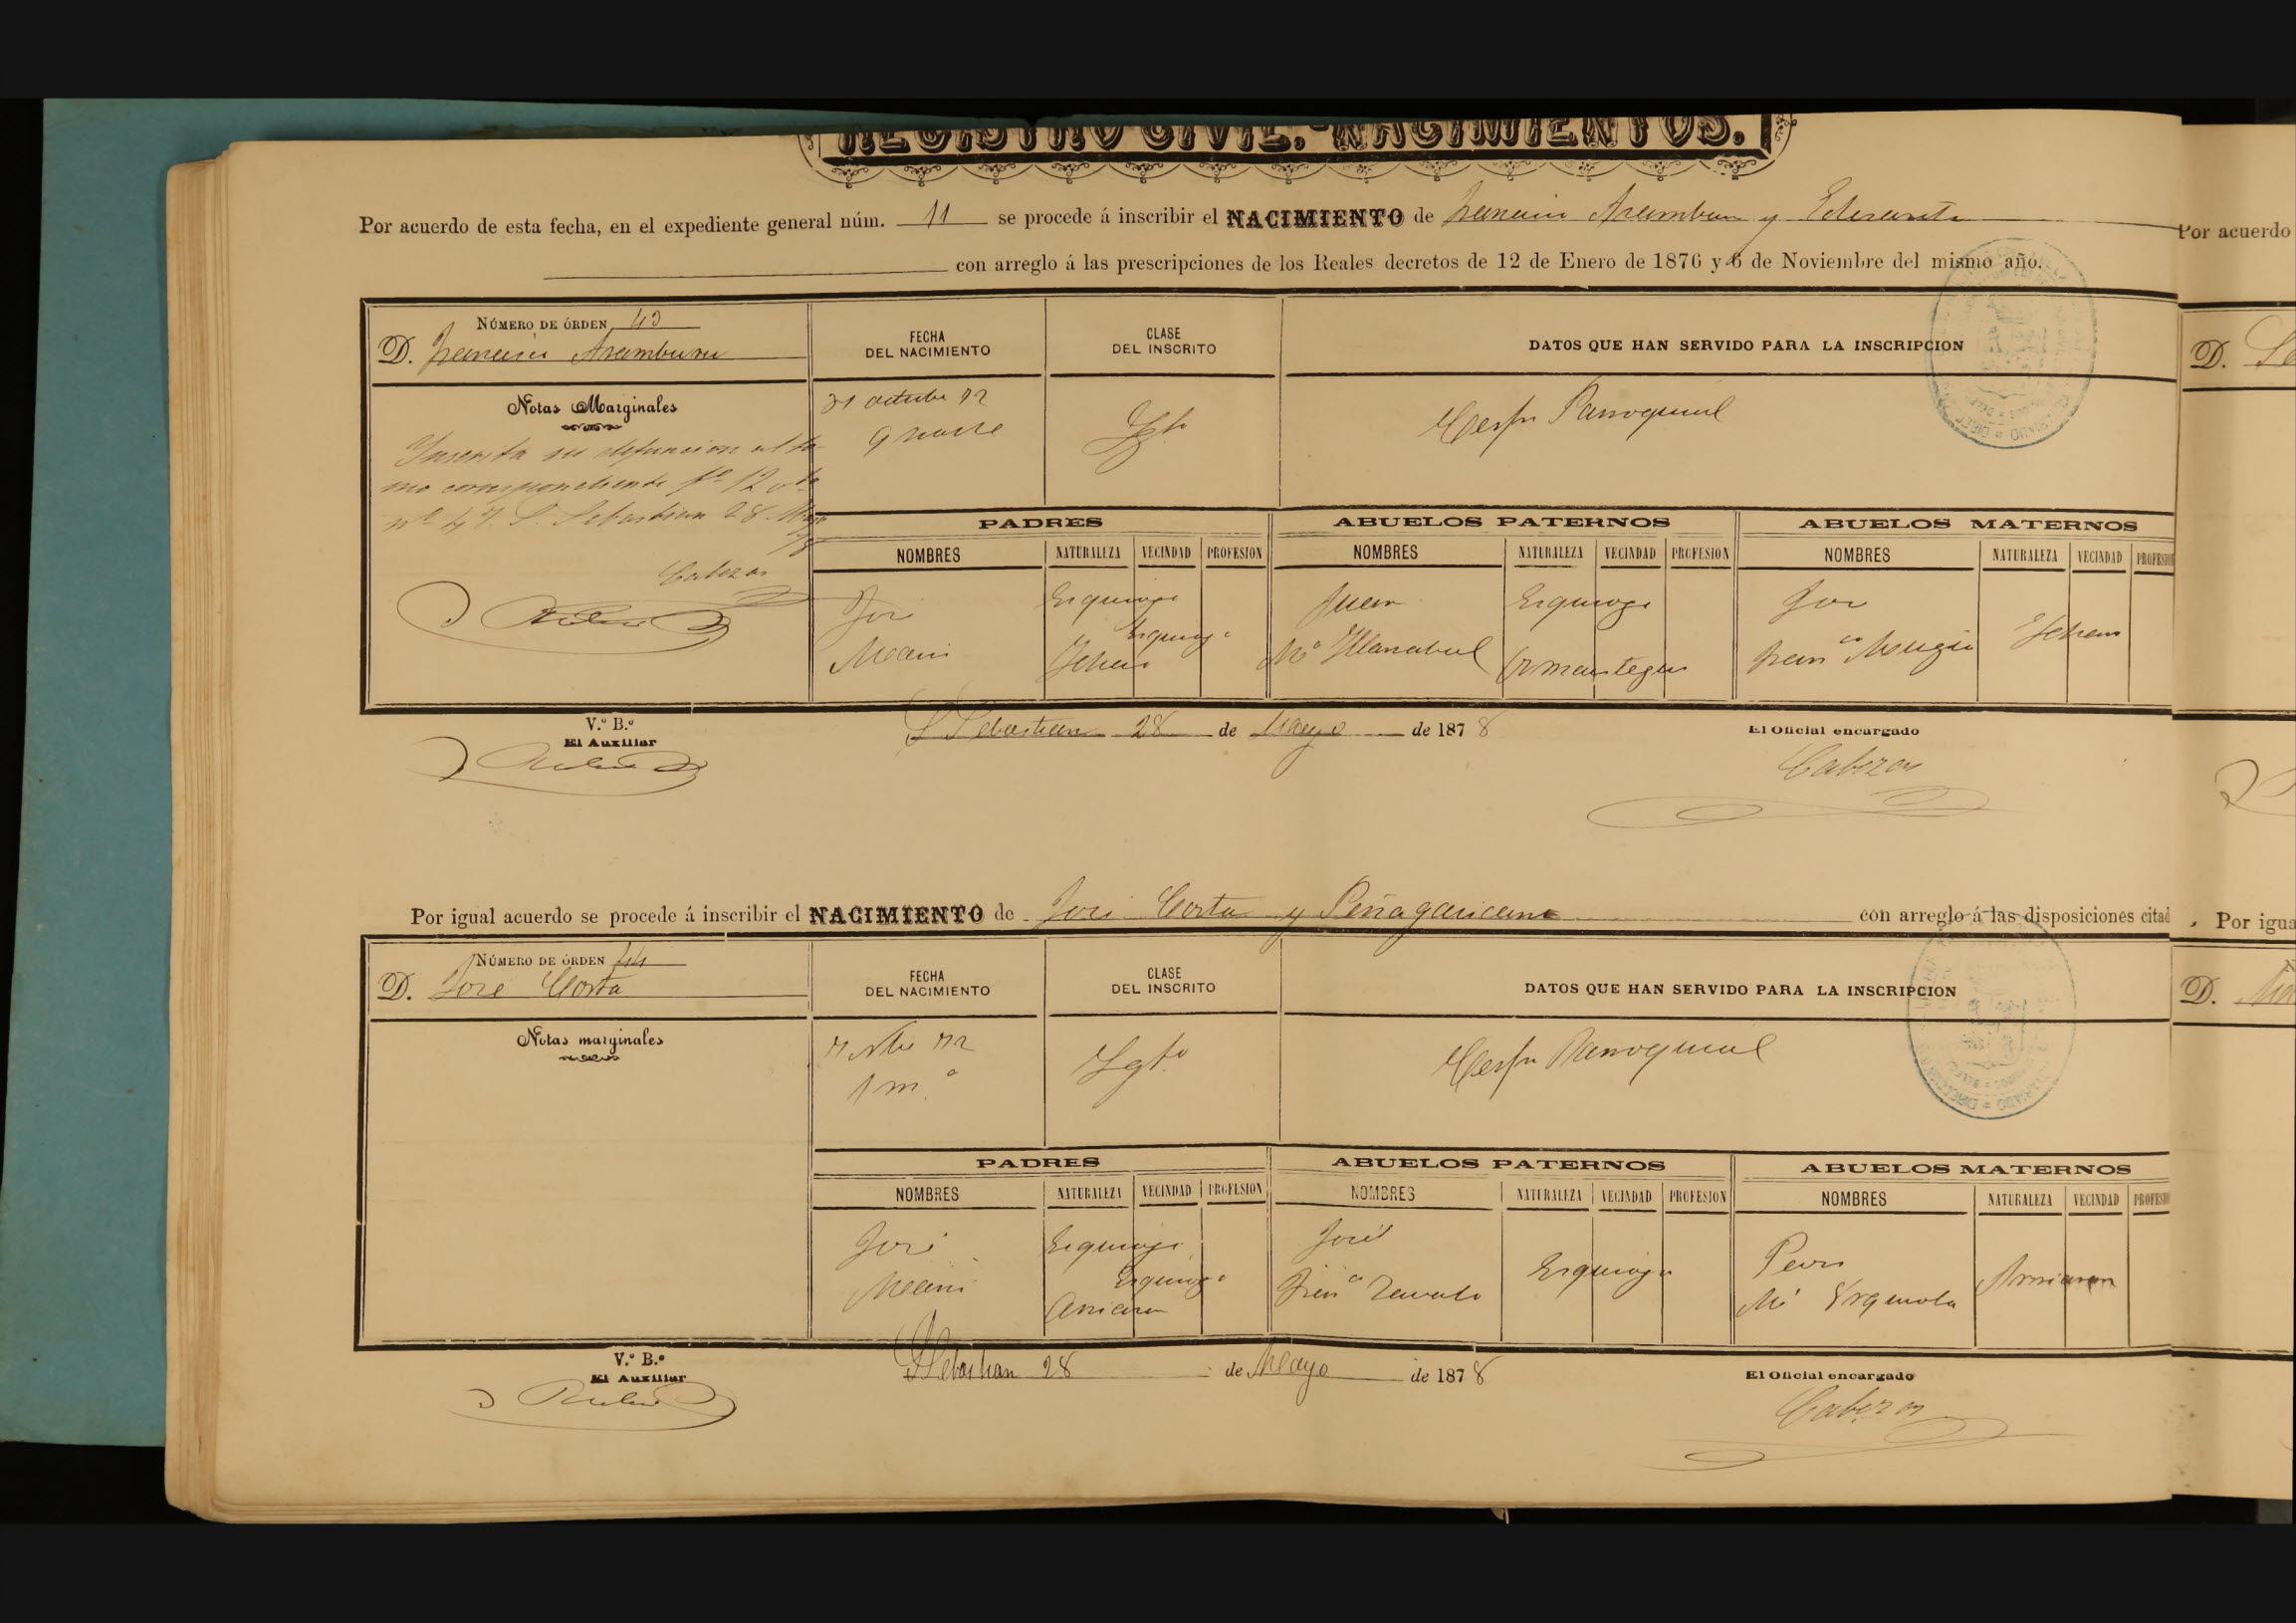 REGISTRO CIVIL.-NACIMIENTOS.
Por acuerdo de esta fecha, en el expediente general núm. 11 se procede á inscribir el NACIMIENTO de Aramburu y
con arreglo á las prescripciones de los Reales decretos de 12 de Enero de 1876 y 6 de Noviembre del mismo año.
NÚMERO DE ÓRDEN 43
D. Aramburu
FECHA DEL NACIMIENTO
CLASE DEL INSCRITO
DATOS QUE HAN SERVIDO PARA LA INSCRIPCION
Notas Marginales
31 octubre 72
9 noche
Lgto
Parroquial
Inscrita su defuncion al to-
mo correspondiente fº 12 vto
nº 47. S. Sebastian 28 Mayo
78
Cabezas
PADRES
ABUELOS PATERNOS
ABUELOS MATERNOS
NOMBRES NATURALEZA VECINDAD PROFESION NOMBRES NATURALEZA VECINDAD PROFESION NOMBRES NATURALEZA VECINDAD PROFESION
José Ezquioga Juan Ezquioga José
Ezquioga
Maria Ichaso Mª Ormaiztegui Franca Mugica Ichaso
V.º B.º
El Auxiliar
S Sebastian 28 de Mayo de 1878
El Oficial encargado
Cabezas
Por igual acuerdo se procede á inscribir el NACIMIENTO de José Corta y Peñagaricano con arreglo á las disposiciones citad
NÚMERO DE ÓRDEN 44
D. José Corta
FECHA DEL NACIMIENTO
CLASE DEL INSCRITO
DATOS QUE HAN SERVIDO PARA LA INSCRIPCION
Notas marginales
7 72
1 m.ª
Lgto
Parroquial
PADRES
ABUELOS PATERNOS
ABUELOS MATERNOS
NOMBRES NATURALEZA VECINDAD PROFESION NOMBRES NATURALEZA VECINDAD PROFESION NOMBRES NATURALEZA VECINDAD PROFESION
José Ezquioga José Ezquioga Pedro
Ezquioga
Maria Arriaran Franca Zavalo Mª Arriaran
V.º B.º
El Auxiliar
S Sebastian 28 de Mayo de 1878
El Oficial encargado
Cabezas
Por acuerdo
D.
Por igua
D.